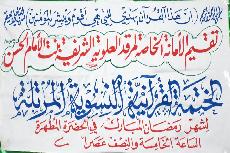 إن هذا القرآن يهدي للتي هي أقوم ويبشر المؤمنين
تقيم الأمانة الخاصة لمرقد العلوية الشريفة بنت الإمام الحسن
الختمة القرآنية النسوية المرتلة
لشهر رمضان المبارك في الحضرة المطهرة
الساعة الخامسة والنصف عصراً